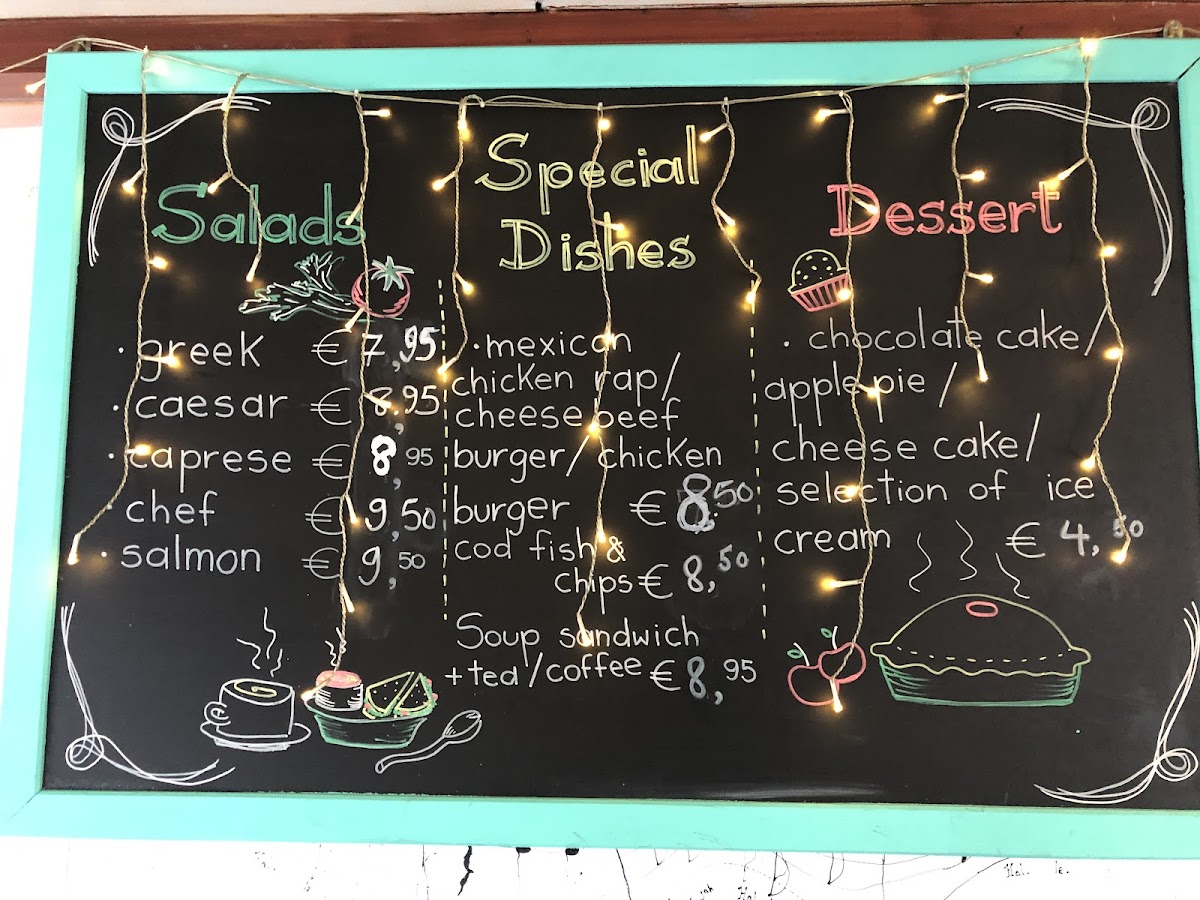 Salads
· greek € 7,95
· caesar € 8,95
· caprese € 8,95
· chef € 9,50
· salmon € 9,50
Special
Dishes
· mexican
chicken rap/
cheese beef
burger/chicken
burger € 8,50
cod fish &
chips € 8,50
Soup sandwich
+ tea/coffee € 8,95
Dessert
· chocolate cake/
apple pie /
cheese cake/
selection of ice
cream € 4,50